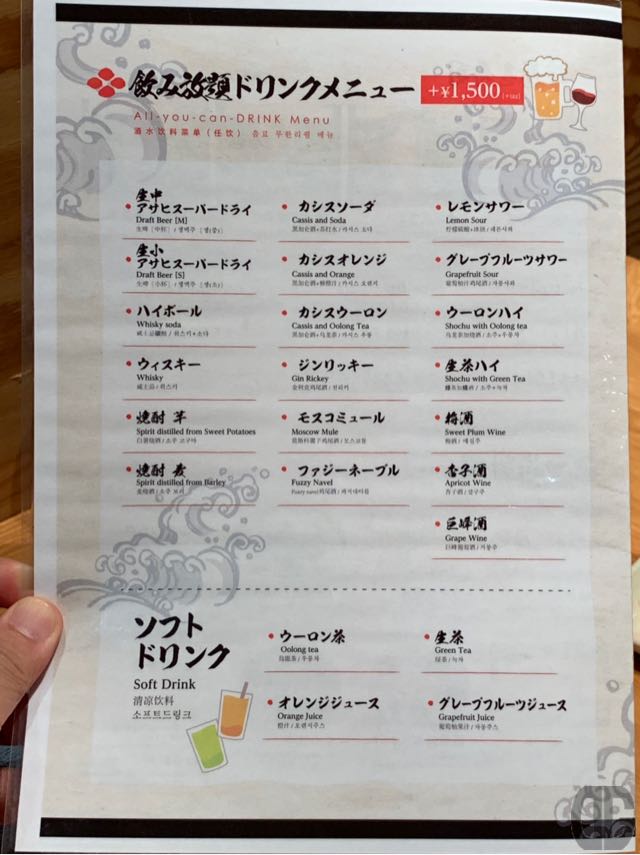 飲み放題ドリンクメニュー +¥1,500 (+tax)
All-you-can-DRINK Menu
酒水饮料菜单（任饮） 음료 무한리필 메뉴
生中
アサヒスーパードライ
Draft Beer [M]
生啤［中杯］/ 생맥주［생(중)］
生小
アサヒスーパードライ
Draft Beer [S]
生啤［小杯］/ 생맥주［생(소)］
ハイボール
Whisky soda
위스키+소다
ウィスキー
Whisky
威士忌 / 위스키
焼酎 芋
Spirit distilled from Sweet Potatoes
白薯烧酒 / 소주 고구마
焼酎 麦
Spirit distilled from Barley
麦烧酒 / 소주 보리
カシスソーダ
Cassis and Soda
黑加仑酒+苏打水 / 카시스 소다
カシスオレンジ
Cassis and Orange
黑加仑酒+橙汁 / 카시스 오렌지
カシスウーロン
Cassis and Oolong Tea
黑加仑酒+乌龙茶 / 카시스 우롱
ジンリッキー
Gin Rickey
진리키
モスコミュール
Moscow Mule
莫斯科骡子鸡尾酒 / 모스코뮬
ファジーネーブル
Fuzzy Navel
Fuzzy navel鸡尾酒 / 퍼지네이블
レモンサワー
Lemon Sour
레몬사와
グレープフルーツサワー
Grapefruit Sour
葡萄柚汁鸡尾酒 / 자몽사와
ウーロンハイ
Shochu with Oolong tea
乌龙茶加烧酒 / 소주+우롱차
生茶ハイ
Shochu with Green Tea
绿茶加烧酒 / 소주+녹차
梅酒
Sweet Plum Wine
梅酒 / 매실주
杏子酒
Apricot Wine
杏子酒 / 살구주
巨峰酒
Grape Wine
巨峰葡萄酒 / 거봉주
ソフト
ドリンク
Soft Drink
清凉饮料
소프트드링크
ウーロン茶
Oolong tea
乌龙茶 / 우롱차
生茶
Green Tea
绿茶 / 녹차
オレンジジュース
Orange Juice
橙汁 / 오렌지주스
グレープフルーツジュース
Grapefruit Juice
葡萄柚果汁 / 자몽주스